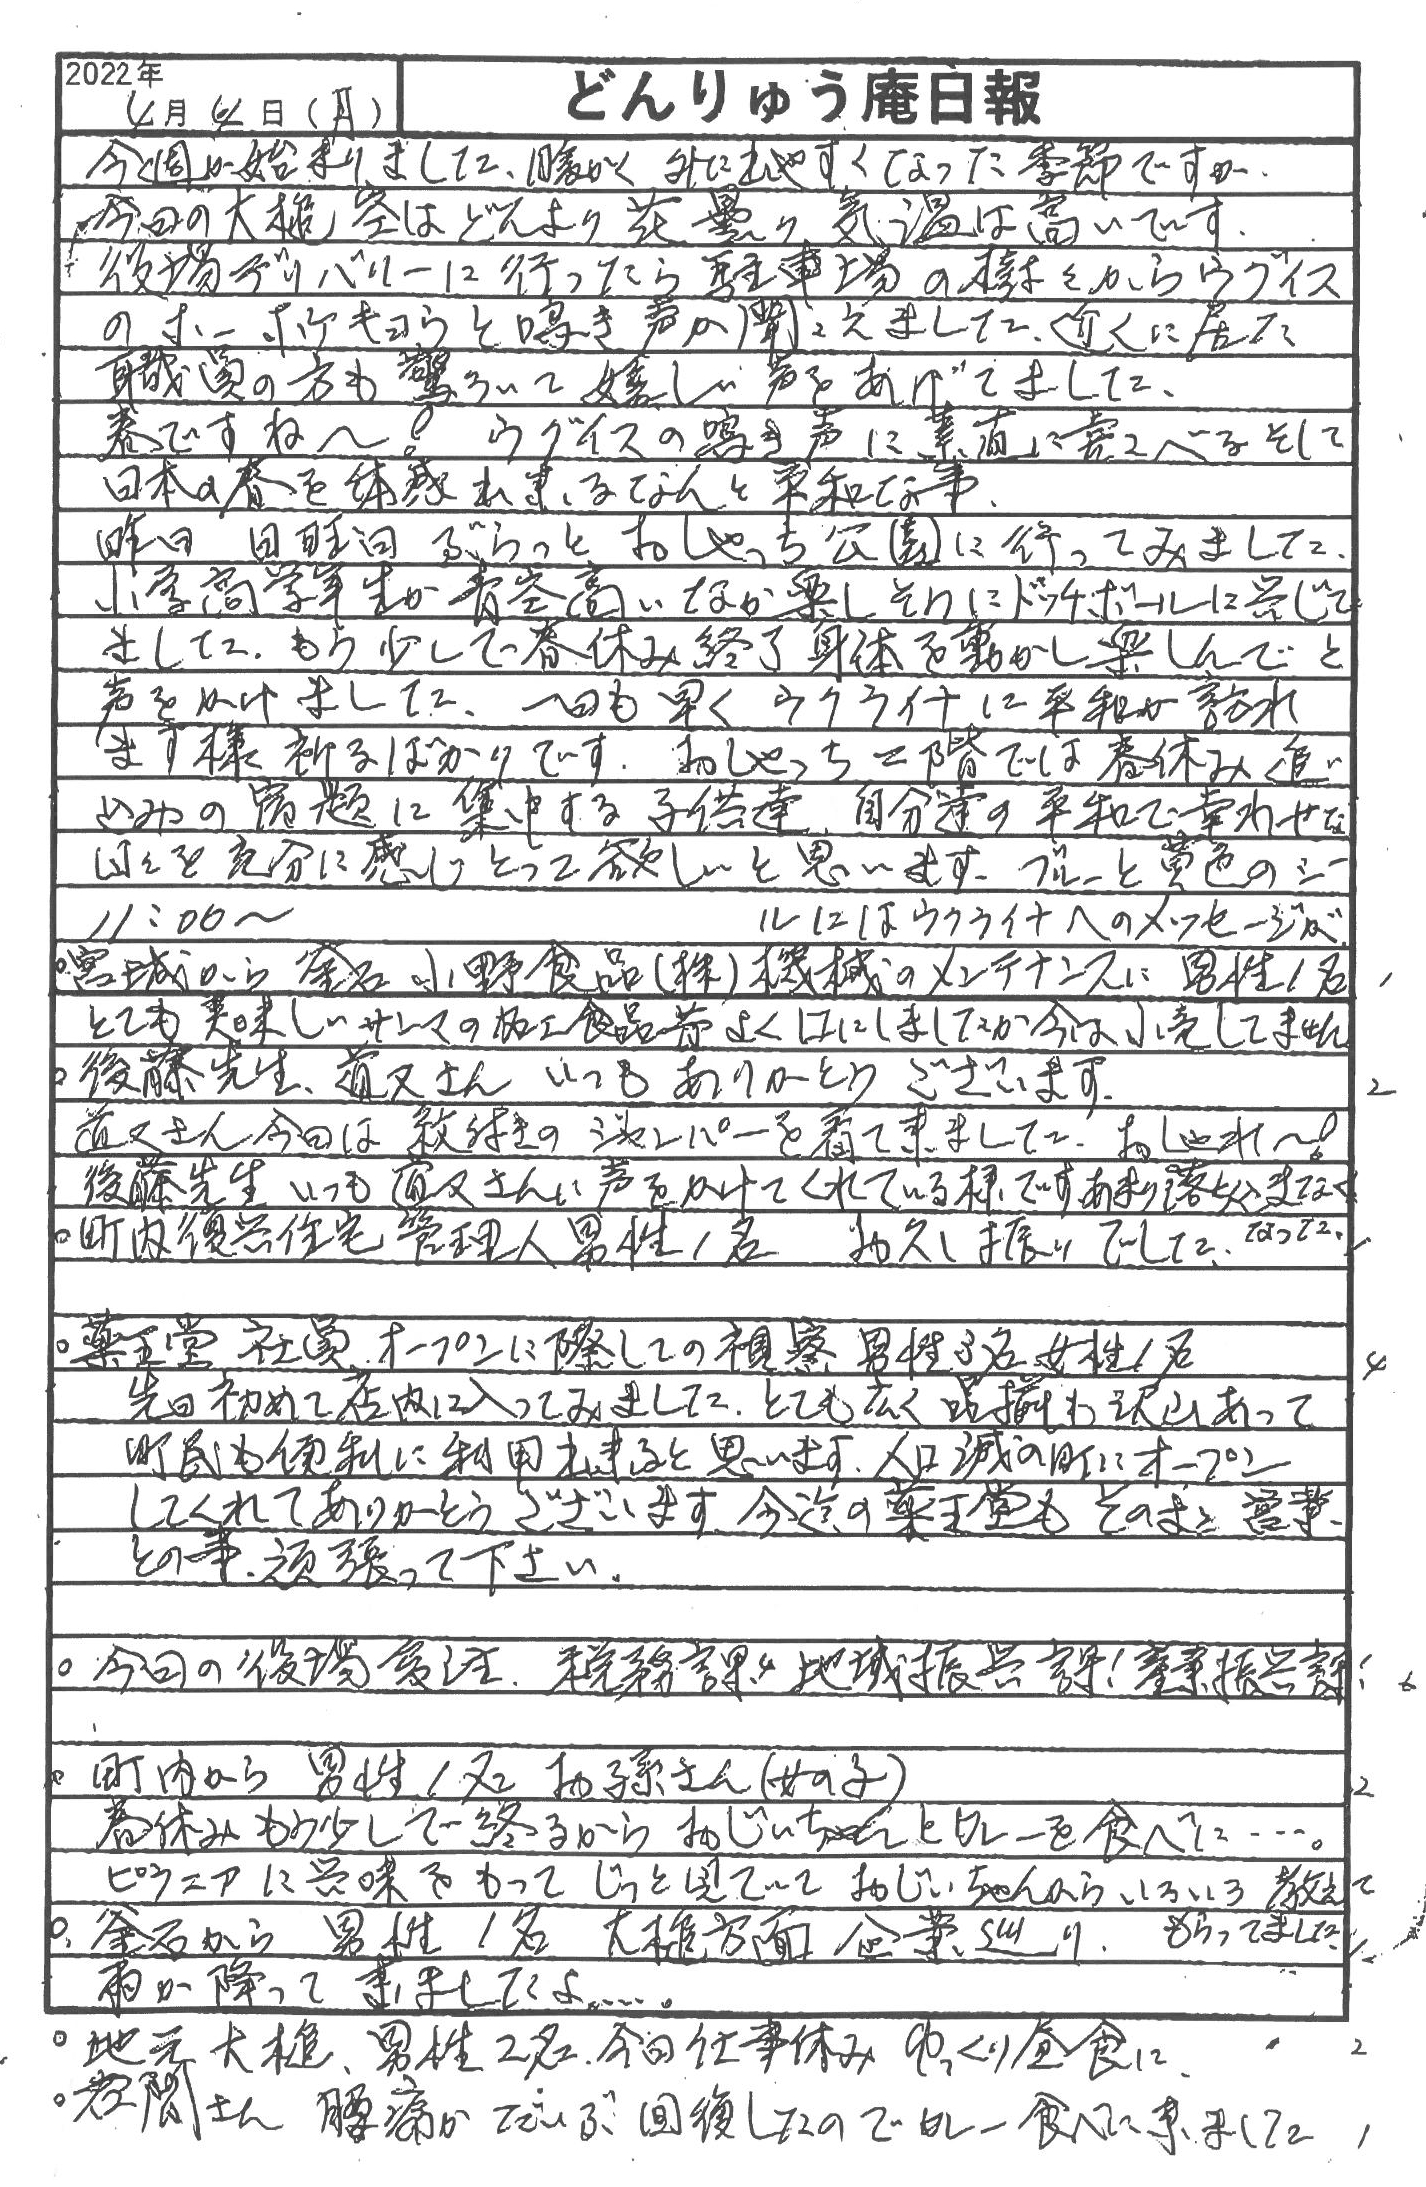 2022年
4月4日(月)
どんりゅう庵日報
今週が始まりました、暖かく外に出やすくなった季節ですが、
今日の大槌 空はどんより花曇り気温は高いです。
役場デリバリーに行ったら駐車場の樹木からウグイス
のホーホケキョっと鳴き声が聞こえました、近くに居た
職員の方も驚ろいて嬉しい声をあげてました、
春ですね〜! ウグイスの鳴き声に素直に喜こべるそして
日本の春を体感出来るなんと平和な事、
昨日 日曜日 ぶらっと おしゃっち公園に行ってみました、
小学高学年生が青空高いなか楽しそうにドッチボールに興じて
ました、もう少しで春休み終了 身体を動かし楽しんでと
声をかけました、一日も早く ウクライナに平和が訪れ
ます様に祈るばかりです。 おしゃっち二階では春休み追い
込みの宿題に集中する子供達 自分達の平和で幸わせな
日々を充分に感じとって欲しいと思います。ブルーと黄色のシー
ルにはウクライナへのメッセージが、
11:00〜
宮城から釜石 小野食品(株)機械のメンテナンスに 男性1名 1
とても美味しいサンマの加工食品昔よく口にしましたが今は小売してません
後藤先生、道又さん いつもありがとうございます。 2
道又さん今日は紋付きのジャンパーを着て来ました、おしゃれ〜!
後藤先生 いつも道又さんに声をかけてくれている様ですあまり落ち込まなく
なった、
町内復興住宅 管理人男性1名 お久し振りでした、 1
薬王堂 社員 オープンに際しての視察 男性3名 女性1名 4
先日初めて店内に入ってみました、とても広く品揃も沢山あって
町民も便利に利用出来ると思います、人口減の町にオープン
してくれてありがとうございます 今迄の薬王堂もそのまま営業
との事、頑張って下さい。
今日の役場食注、税務課4 地域振興課1 産業振興課1 6
町内から 男性1名 お孫さん(女の子) 2
春休みもう少しで終るから おじいちゃんとカレーを食べに……。
ピラニアに興味をもって じっと見ていて おじいちゃんからいろいろ教えて
もらってました、
釜石から 男性1名 大槌方面 企業廻り、 1
雨が降って来ましたよ……。
地元 大槌、男性2名、今日仕事休み ゆっくり昼食に、 2
さん 腰痛がだいぶ回復したのでカレー食べに来ました 1